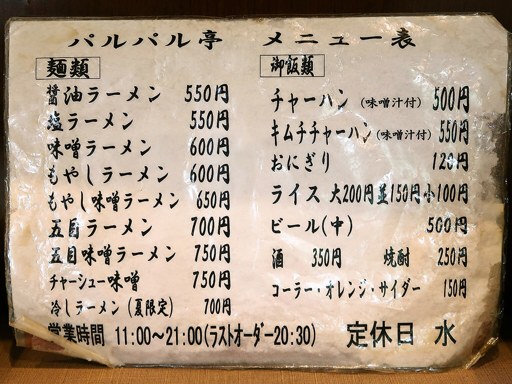 パルパル亭 メニュー表
麺類
醤油ラーメン 550円
塩ラーメン 550円
味噌ラーメン 600円
もやしラーメン 600円
もやし味噌ラーメン 650円
五目ラーメン 700円
五目味噌ラーメン 750円
チャーシュー味噌 750円
冷しラーメン(夏限定) 700円
御飯類
チャーハン(味噌汁付) 500円
キムチチャーハン(味噌汁付) 550円
おにぎり 120円
ライス 大200円並150円小100円
ビール(中) 500円
酒 350円 焼酎 250円
コーラー・オレンジ・サイダー 150円
営業時間 11:00〜21:00(ラストオーダー20:30) 定休日 水